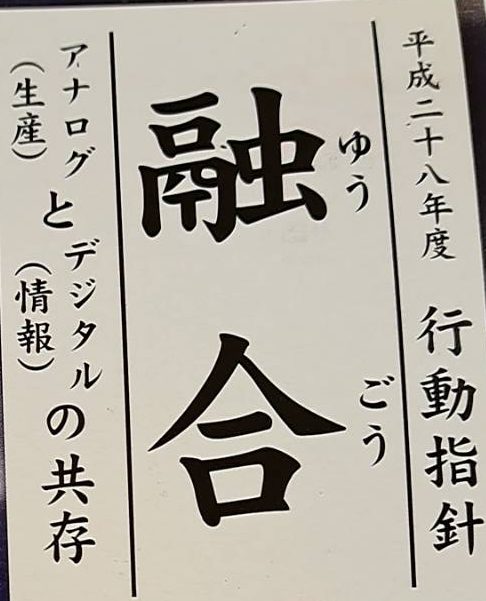 平成二十八年度 行動指針
融合
ゆうごう
アナログとデジタルの共存
(生産) (情報)